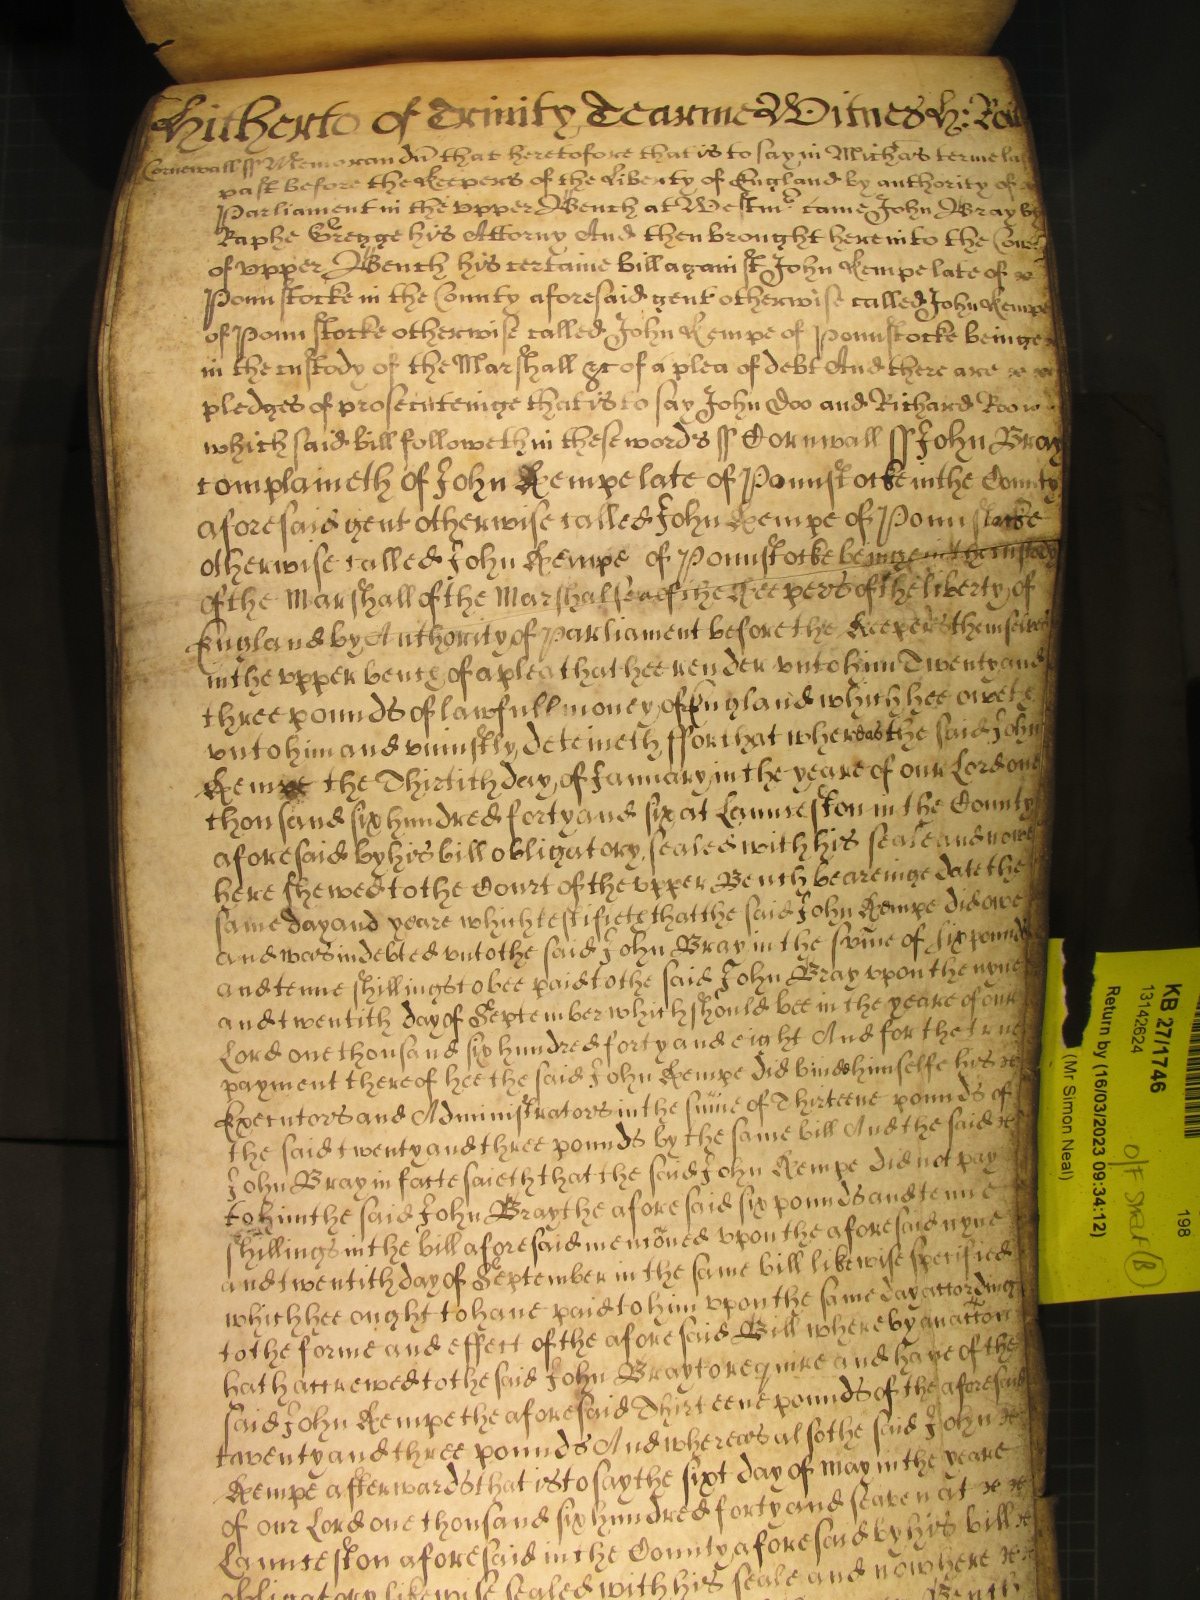 Hitherto of Trinity Tearme Witnes H: Ro
Cornewall ss Memorandū that heretofore that is to say in Michas terme la
past before the Keepers of the Liberty of England by authority of
Parliament in the upper Bench at Westmr came John Bray by
Raphe Gregge his Attorny And then brought here into the Cour
of upper Bench his certaine bill against John Kempe late of
Pounstocke in the County aforesaid gent otherwise called John Kempe
of Pounstocke otherwise called John Kempe of Pounstocke beinge
in the custody of the Marshall &c of a plea of debt And there are
pledges of prosecuteinge that is to say John Doo and Richard Roo
which said bill followeth in these words ss Cornwall ss John Bray
complaineth of John Kempe late of Pounstocke in the County
aforesaid gent otherwise called John Kempe of Pounstocke
otherwise called John Kempe of Pounstocke beinge in the custody
of the Marshall of the Marshalsea of the Keepers of the liberty of
England by Authority of Parliament before the Keepers themselves
in the upper bench of a plea that hee render unto him Twenty and
three pounds of lawfull money of England which hee oweth
unto him and uniustly deteineth ffor that whereas the said John
Kempe the Thirtith day of January in the yeare of our Lord one
thousand six hundred forty and six at Launceston in the County
aforesaid by his bill obligatory sealed with his seale and nowe
here shewed to the Court of the upper Bench beareinge date the
same day and yeare which testifieth that the said John Kempe did owe
and was indebted unto the said John Bray in the sume of six pounds
and tenne shillings to bee paid to the said John Bray upon the nyne
and twentith day of September which should bee in the yeare of our
Lord one thousand six hundred forty and eight And for the true
payment thereof hee the said John Kempe did bind himselfe his
Executors and Administrators in the sume of Thirteene pounds of
the said twenty and three pounds by the same bill And the said
John Bray in facte saieth that the said John Kempe did not pay
to him the said John Bray the aforesaid six pounds and tenne
shillings in the bill aforesaid menc̄oned upon the aforesaid nyne
and twentith day of September in the same bill likewise specified
which hee ought to have paid to him upon the same day according
to the forme and effect of the aforesaid Bill whereby an acc̄on
hath accrewed to the said John Bray to require and have of the
said John Kempe the aforesaid Thirteene pounds of the aforesaid
twenty and three pounds And whereas also the said John
Kempe afterwards that is to say the sixt day of May in the yeare
of our Lord one thousand six hundred forty and seaven at
Launceston aforesaid in the County aforesaid by his bill
obligatory likewise sealed with his seale and now here
Bench
KB 27/1746
13142624
Return by (16/03/2023 09:34:12)
(Mr Simon Neal)
198